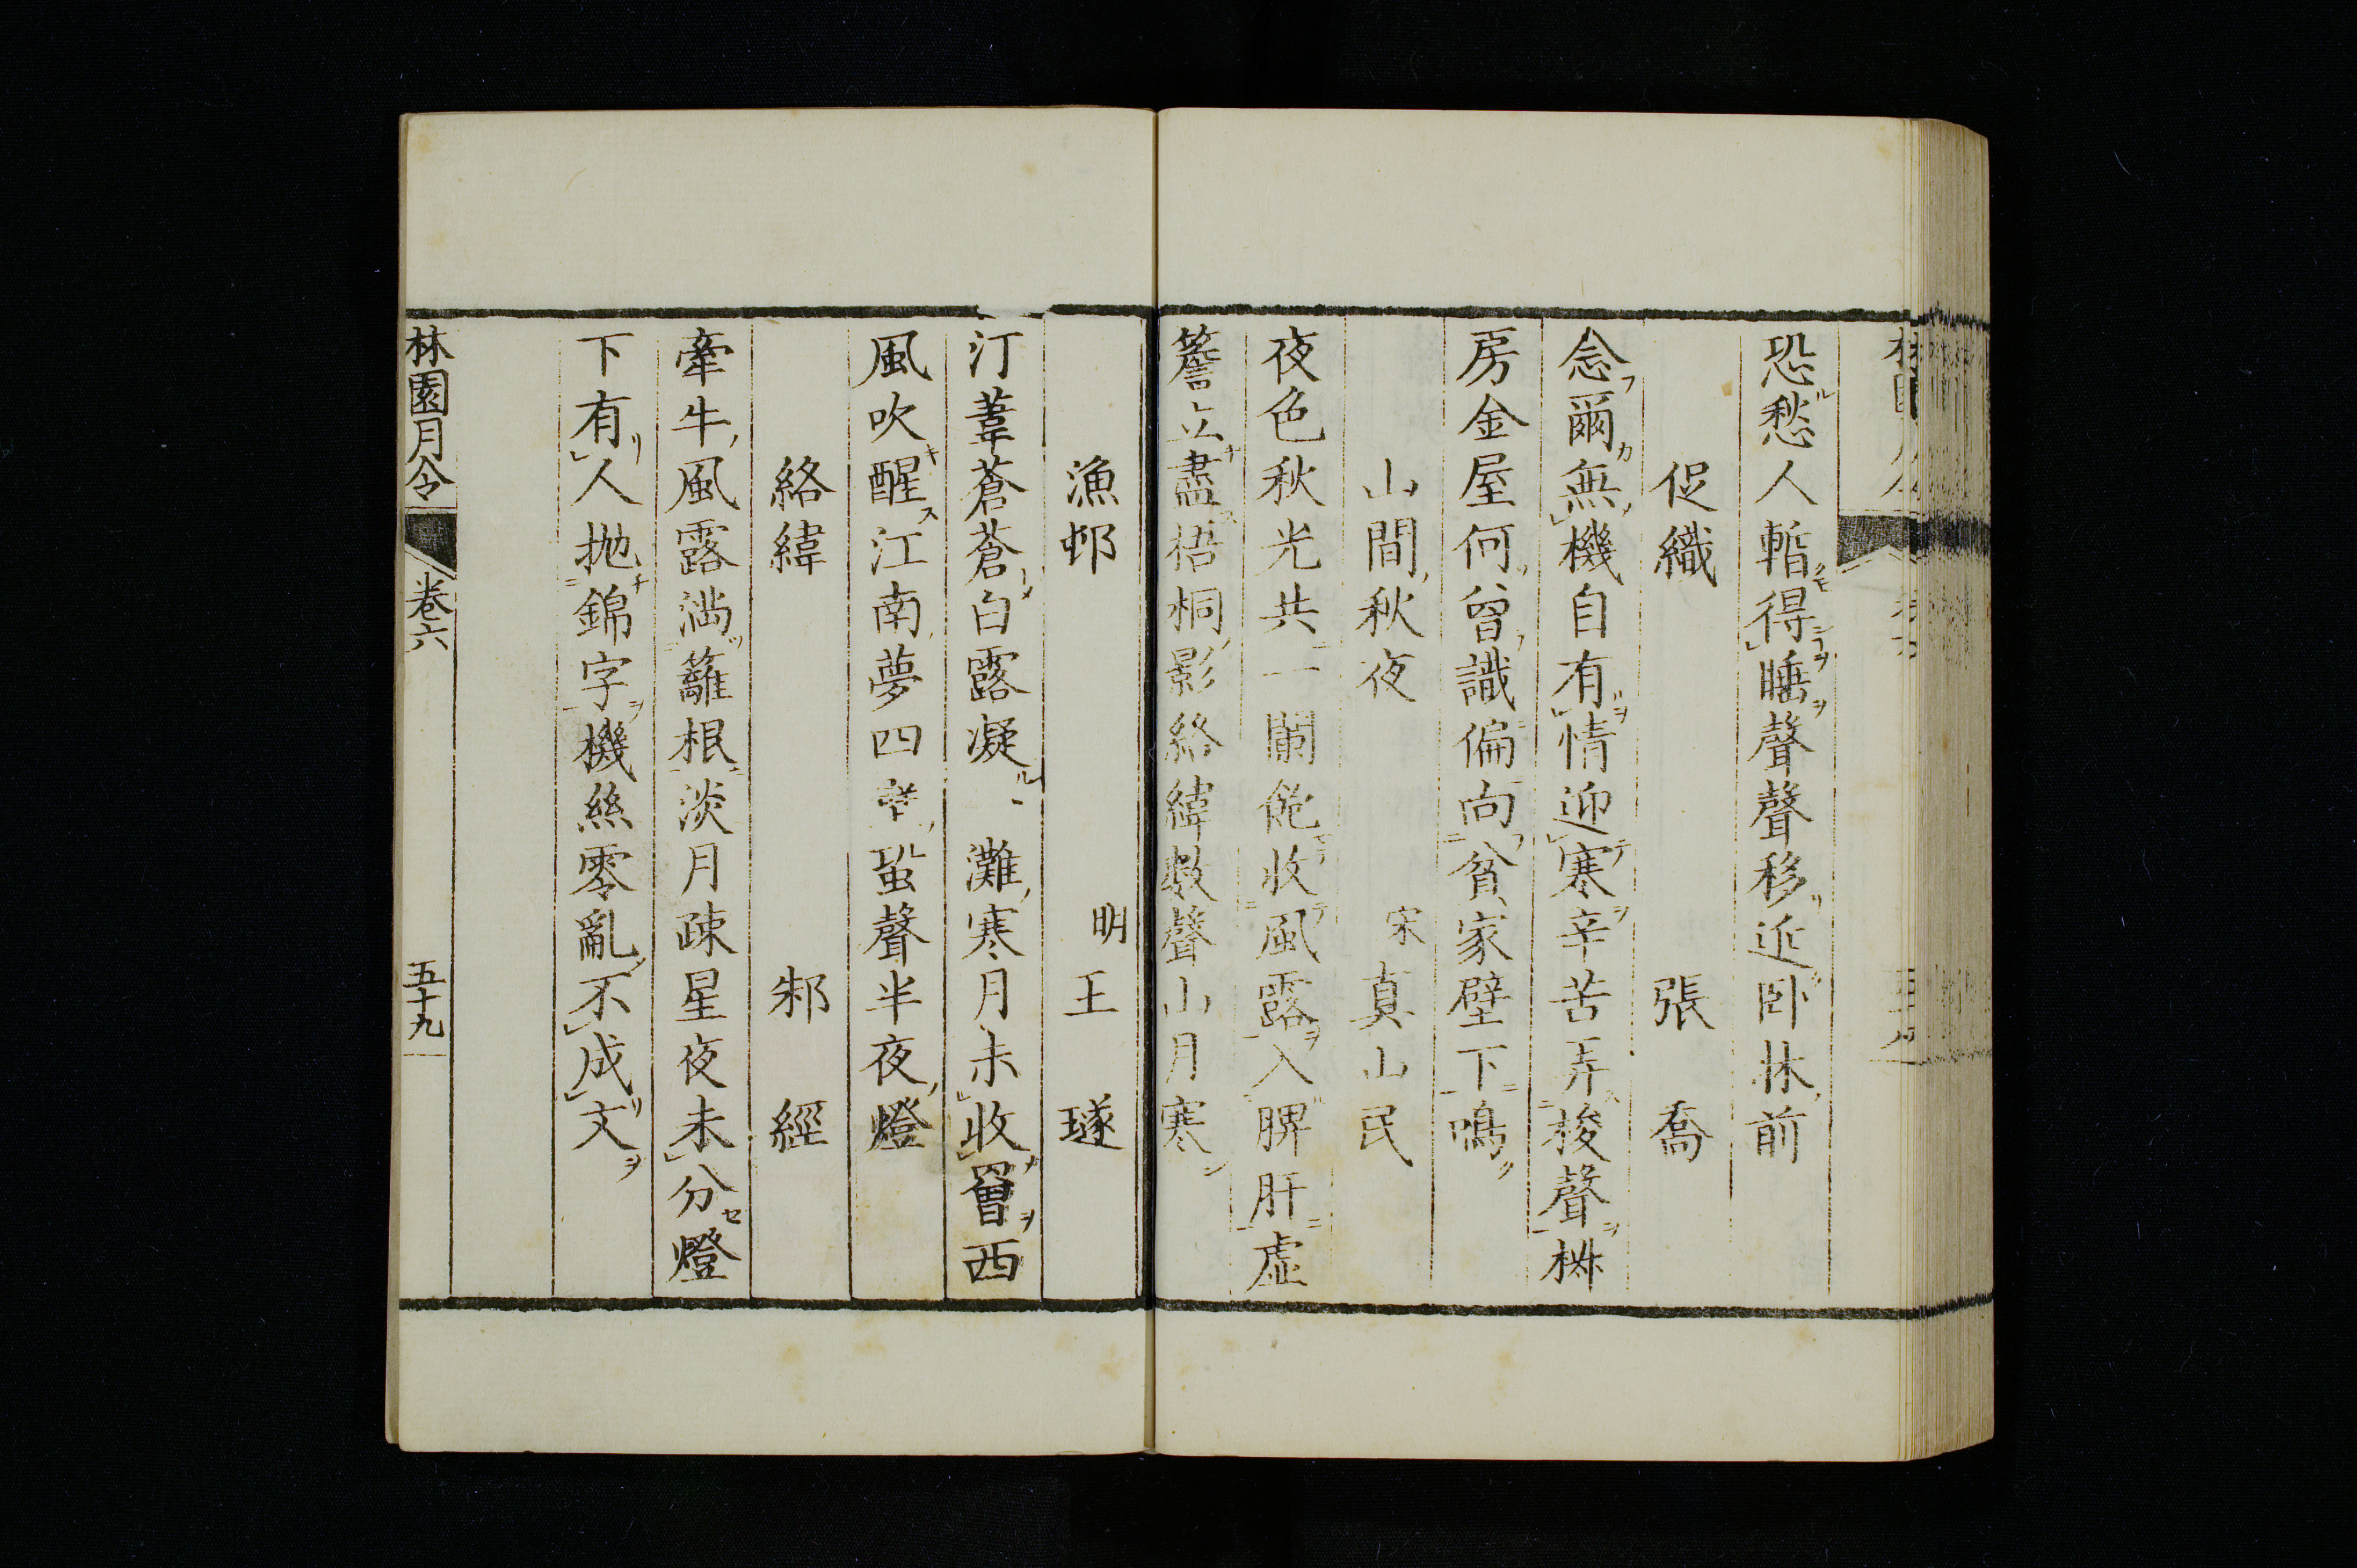 恐愁人暫得睡聲聲移近卧牀前
促織　張喬
念爾無機自有情迎寒辛苦弄梭聲椒
房金屋何曾識偏向貧家壁下鳴
山間秋夜　宋真山民
夜色秋光共一闌飽收風露入脾肝虛
簷立盡梧桐影絡緯數聲山月寒
漁邨　明王璲
汀葦蒼蒼白露凝灘寒月未收罾西
風吹醒江南夢四壁蛩聲半夜燈
絡緯　邾經
牽牛風露滿籬根淡月疎星夜未分燈
下有人抛錦字機絲零亂不成文
林園月令　卷六　五十九